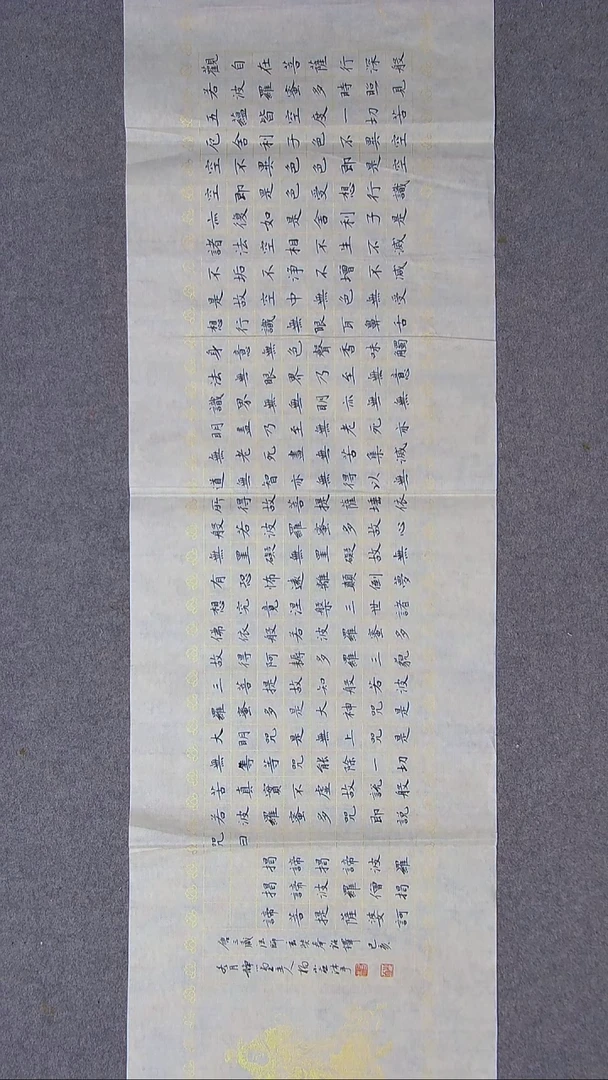 觀自在菩薩行深般
若波羅蜜多時照見
五蘊皆空度一切苦
厄舍利子色不異空
空不異色色即是空
空即是色受想行識
亦復如是舍利子是
諸法空相不生不滅
不垢不淨不增不減
是故空中無色無受
想行識無眼耳鼻舌
身意無色聲香味觸
法無眼界乃至無意
識界無無明亦無無
明盡乃至無老死亦
無老死盡無苦集滅
道無智亦無得以無
所得故菩提薩埵依
般若波羅蜜多故心
無罣礙無罣礙故無
有恐怖遠離顛倒夢
想究竟涅槃三世諸
佛依般若波羅蜜多
故得阿耨多羅三藐
三菩提故知般若波
羅蜜多是大神咒是
大明咒是無上咒是
無等等咒能除一切
苦真實不虛故說般
若波羅蜜多咒即說
咒曰
揭諦揭諦波羅
揭諦波羅僧揭
諦菩提薩婆訶
唐三藏法師玄奘奉詔譯 己亥